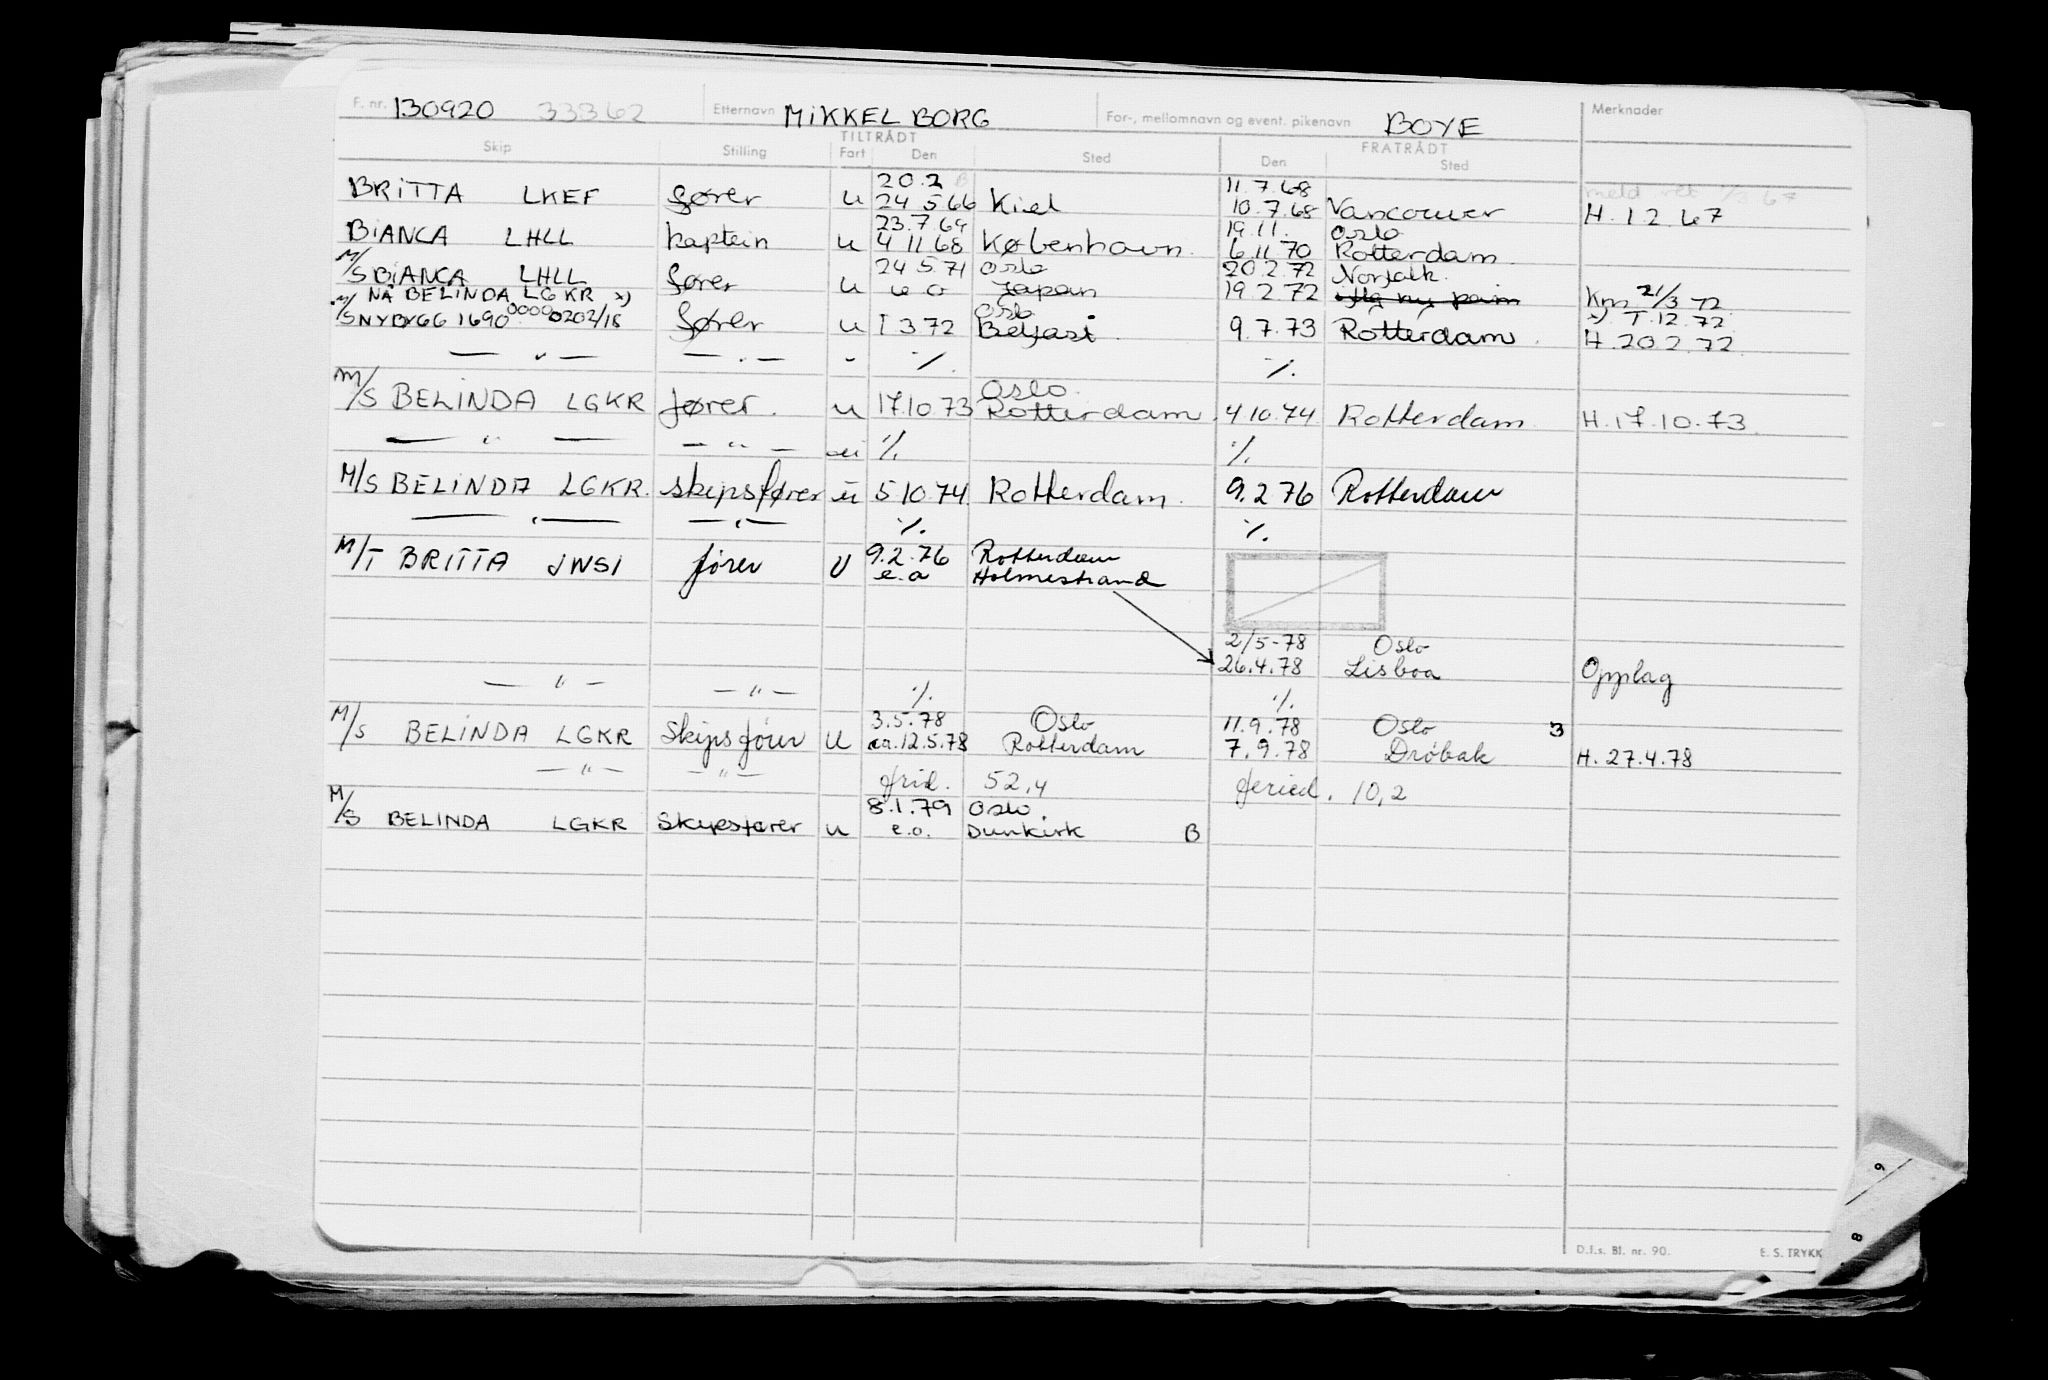 F. nr. 130920 33362 Etternavn MIKKELBORG For-, mellomnavn og event. pikenavn BOYE Merknader
TILTRÅDT FRATRÅDT
Skip Stilling Fart Den Sted Den Sted
20.2 11.7.68
BRITTA LKEF fører u 24 5 66 Kiel 10.7.68 Vancouver H. 1 2. 67
23.7.69 19.11. Oslo
BIANCA LHLL kaptein u 4 11 68 København. 6.11.70 Rotterdam.
24 5.71 Oslo 20.2.72 Norfolk.
M/S BIANCA LHLL fører u e o Japan 19 2 72 Km 21/3 72
NÅ BELINDA LGKR x) Oslo x) T. 12. 72
M/S NYBYGG 1690 0000 0202/18 fører u 1 3 72 Belfast. 9.7.73 Rotterdam. H. 20 2. 72.
— " — — " — " ./. ./.
Oslo.
M/S BELINDA LGKR fører. u 17.10 73 Rotterdam. 4.10.74 Rotterdam H. 17.10.73.
— " — — " — ./. ./.
M/S BELINDA LGKR. skipsfører u 5 10 74. Rotterdam. 9.2 76 Rotterdam
— " — — " — ./. ./.
9.2.76 Rotterdam
M/T BRITTA JWSI fører U e.o Holmestrand
2/5-78 Oslo
26.4.78 Lisboa Opplag
— " — — " — ./. ./.
3.5.78 Oslo 11.9.78 Oslo 3
M/S BELINDA LGKR Skipsfører U ca.12.5.78 Rotterdam 7.9.78 Drøbak H. 27.4.78
— " — — " — frid. 52,4 feried. 10,2
8.1.79 Oslo.
M/S BELINDA LGKR Skipsfører u e.o. Dunkirk B
D.f.s. Bl. nr. 90. E. S. TRYKK
9
8